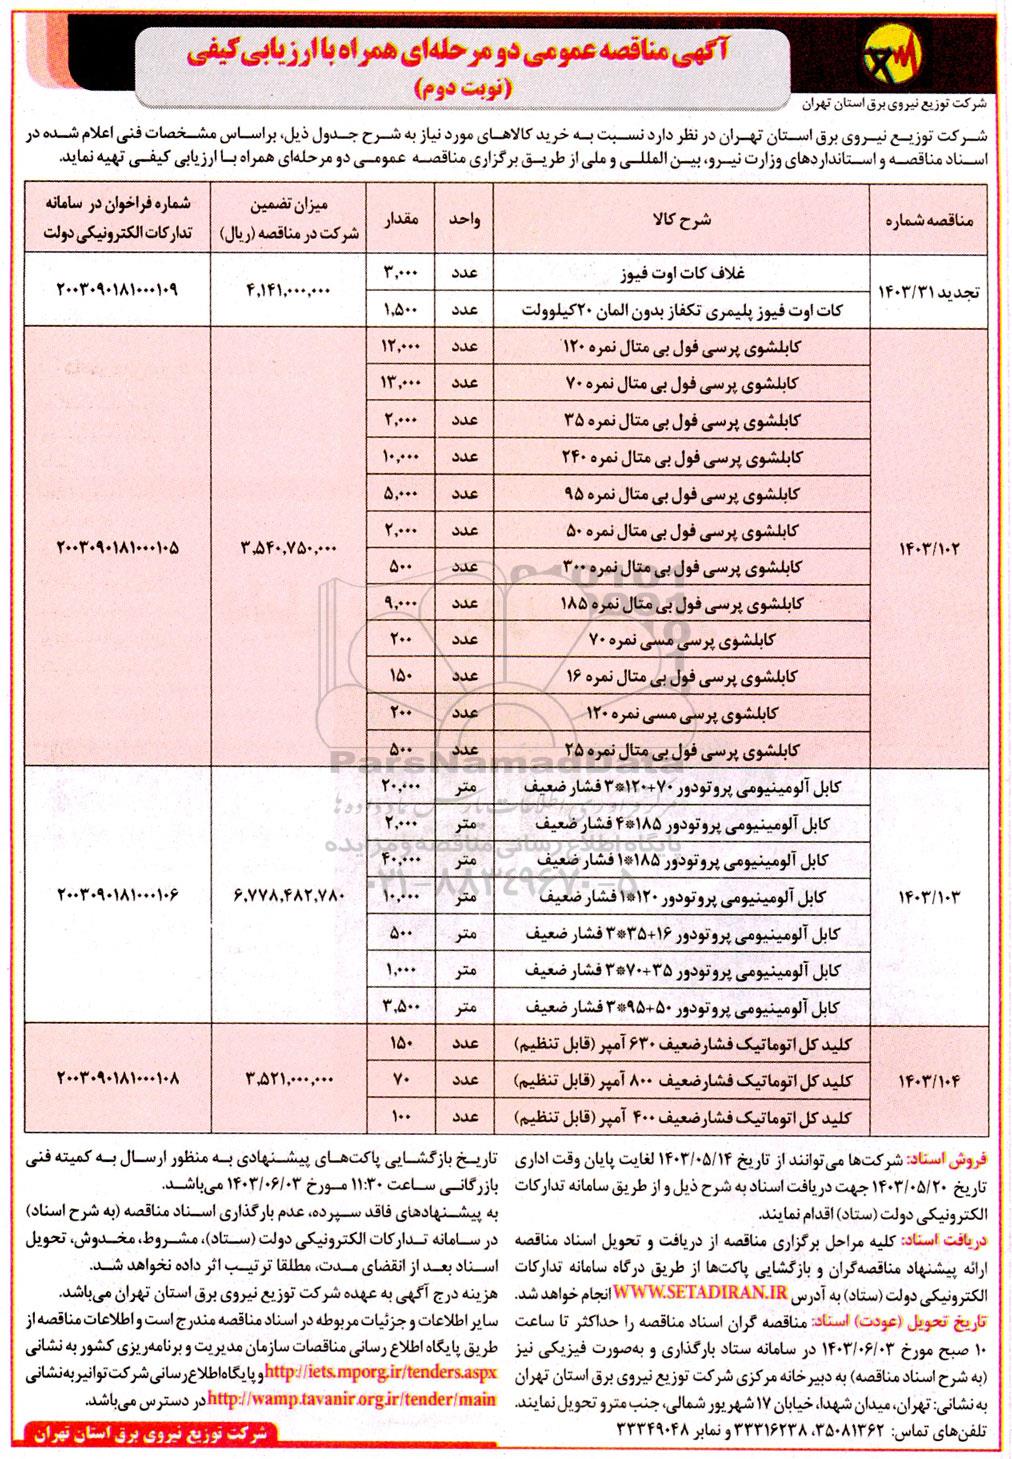 آگهی مناقصه عمومی دو مرحله‌ای همراه با ارزیابی کیفی
(نوبت دوم)
شرکت توزیع نیروی برق استان تهران
شرکت توزیع نیروی برق استان تهران در نظر دارد نسبت به خرید کالاهای مورد نیاز به شرح جدول ذیل، براساس مشخصات فنی اعلام شده در
اسناد مناقصه و استانداردهای وزارت نیرو، بین المللی و ملی از طریق برگزاری مناقصه عمومی دو مرحله‌ای همراه با ارزیابی کیفی تهیه نماید.
مناقصه شماره | شرح کالا | واحد | مقدار | میزان تضمین شرکت در مناقصه (ریال) | شماره فراخوان در سامانه تدارکات الکترونیکی دولت
تجدید ۱۴۰۳/۳۱ | غلاف کات اوت فیوز | عدد | ۳,۰۰۰ | ۴,۱۴۱,۰۰۰,۰۰۰ | ۲۰۰۳۰۹۰۱۸۱۰۰۰۱۰۹
کات اوت فیوز پلیمری تکفاز بدون المان ۲۰کیلوولت | عدد | ۱,۵۰۰
۱۴۰۳/۱۰۲ | کابلشوی پرسی فول بی متال نمره ۱۲۰ | عدد | ۱۲,۰۰۰ | ۳,۵۴۰,۷۵۰,۰۰۰ | ۲۰۰۳۰۹۰۱۸۱۰۰۰۱۰۵
کابلشوی پرسی فول بی متال نمره ۷۰ | عدد | ۱۳,۰۰۰
کابلشوی پرسی فول بی متال نمره ۳۵ | عدد | ۲,۰۰۰
کابلشوی پرسی فول بی متال نمره ۲۴۰ | عدد | ۱۰,۰۰۰
کابلشوی پرسی فول بی متال نمره ۹۵ | عدد | ۵,۰۰۰
کابلشوی پرسی فول بی متال نمره ۵۰ | عدد | ۲,۰۰۰
کابلشوی پرسی فول بی متال نمره ۳۰۰ | عدد | ۵۰۰
کابلشوی پرسی فول بی متال نمره ۱۸۵ | عدد | ۹,۰۰۰
کابلشوی پرسی مسی نمره ۷۰ | عدد | ۲۰۰
کابلشوی پرسی فول بی متال نمره ۱۶ | عدد | ۱۵۰
کابلشوی پرسی مسی نمره ۱۲۰ | عدد | ۲۰۰
کابلشوی پرسی فول بی متال نمره ۲۵ | عدد | ۵۰۰
۱۴۰۳/۱۰۳ | کابل آلومینیومی پروتودور ۷۰+۱۲۰*۳ فشار ضعیف | متر | ۲۰,۰۰۰ | ۶,۷۷۸,۴۸۲,۷۸۰ | ۲۰۰۳۰۹۰۱۸۱۰۰۰۱۰۶
کابل آلومینیومی پروتودور ۱۸۵*۴ فشار ضعیف | متر | ۲,۰۰۰
کابل آلومینیومی پروتودور ۱۸۵*۱ فشار ضعیف | متر | ۴۰,۰۰۰
کابل آلومینیومی پروتودور ۱۲۰*۱ فشار ضعیف | متر | ۱۰,۰۰۰
کابل آلومینیومی پروتودور ۱۶+۳۵*۳ فشار ضعیف | متر | ۵۰۰
کابل آلومینیومی پروتودور ۳۵+۷۰*۳ فشار ضعیف | متر | ۱,۰۰۰
کابل آلومینیومی پروتودور ۵۰+۹۵*۳ فشار ضعیف | متر | ۳,۵۰۰
۱۴۰۳/۱۰۴ | کلید کل اتوماتیک فشارضعیف ۶۳۰ آمپر (قابل تنظیم) | عدد | ۱۵۰ | ۳,۵۲۱,۰۰۰,۰۰۰ | ۲۰۰۳۰۹۰۱۸۱۰۰۰۱۰۸
کلید کل اتوماتیک فشارضعیف ۸۰۰ آمپر (قابل تنظیم) | عدد | ۷۰
کلید کل اتوماتیک فشارضعیف ۴۰۰ آمپر (قابل تنظیم) | عدد | ۱۰۰
ParsNamadData
پایگاه اطلاع رسانی مناقصه و مزایده
۰۲۱-۸۸۳۴۹۶۷۰-۵
فروش اسناد: شرکت‌ها می‌توانند از تاریخ ۱۴۰۳/۰۵/۱۴ لغایت پایان وقت اداری
تاریخ ۱۴۰۳/۰۵/۲۰ جهت دریافت اسناد به شرح ذیل و از طریق سامانه تدارکات
الکترونیکی دولت (ستاد) اقدام نمایند.
دریافت اسناد: کلیه مراحل برگزاری مناقصه از دریافت و تحویل اسناد مناقصه
ارائه پیشنهاد مناقصه‌گران و بازگشایی پاکت‌ها از طریق درگاه سامانه تدارکات
الکترونیکی دولت (ستاد) به آدرس WWW.SETADIRAN.IR انجام خواهد شد.
تاریخ تحویل (عودت) اسناد: مناقصه گران اسناد مناقصه را حداکثر تا ساعت
۱۰ صبح مورخ ۱۴۰۳/۰۶/۰۳ در سامانه ستاد بارگذاری و به‌صورت فیزیکی نیز
(به شرح اسناد مناقصه) به دبیرخانه مرکزی شرکت توزیع نیروی برق استان تهران
به نشانی: تهران، میدان شهدا، خیابان ۱۷ شهریور شمالی، جنب مترو تحویل نمایند.
تلفن‌های تماس: ۳۵۰۸۱۳۶۲، ۳۳۳۱۶۲۳۸ و نمابر ۳۳۳۴۹۰۴۸
تاریخ بازگشایی پاکت‌های پیشنهادی به منظور ارسال به کمیته فنی
بازرگانی ساعت ۱۱:۳۰ مورخ ۱۴۰۳/۰۶/۰۳ می‌باشد.
به پیشنهادهای فاقد سپرده، عدم بارگذاری اسناد مناقصه (به شرح اسناد)
در سامانه تدارکات الکترونیکی دولت (ستاد)، مشروط، مخدوش، تحویل
اسناد بعد از انقضای مدت، مطلقا ترتیب اثر داده نخواهد شد.
هزینه درج آگهی به عهده شرکت توزیع نیروی برق استان تهران می‌باشد.
سایر اطلاعات و جزئیات مربوطه در اسناد مناقصه مندرج است و اطلاعات مناقصه از
طریق پایگاه اطلاع رسانی مناقصات سازمان مدیریت و برنامه‌ریزی کشور به نشانی
http://iets.mporg.ir/tenders.aspx و پایگاه اطلاع رسانی شرکت توانیر به نشانی
http://wamp.tavanir.org.ir/tender/main در دسترس می‌باشد.
شرکت توزیع نیروی برق استان تهران